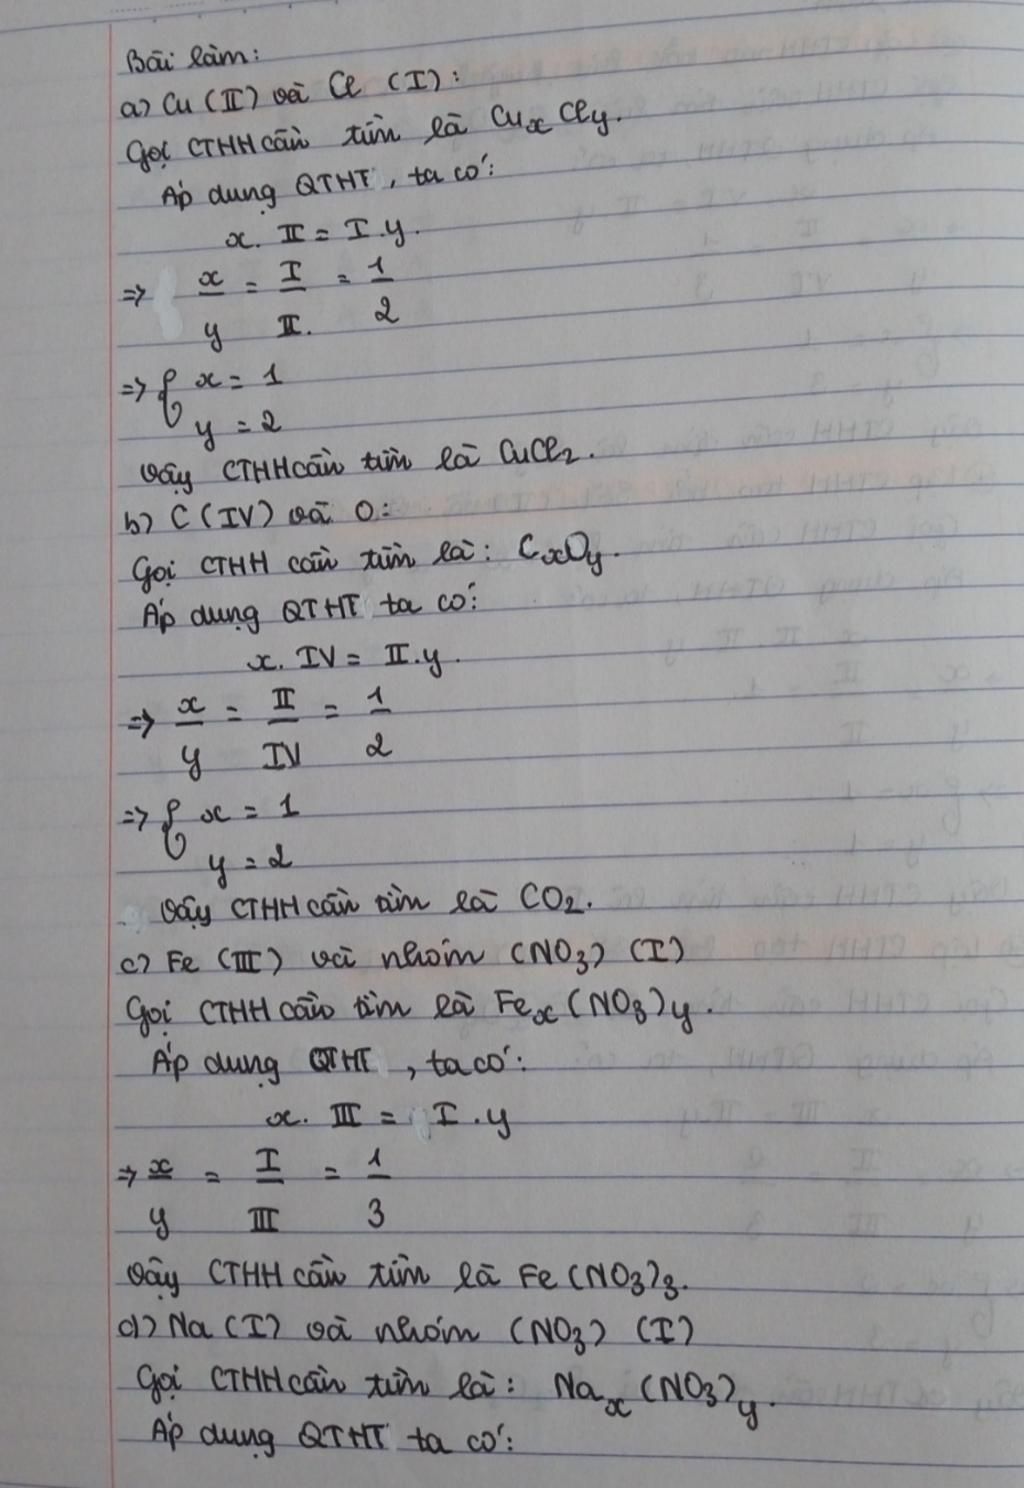 Bài làm:
a) Cu (II) và Cl (I):
Gọi CTHH cần tìm là CuₓClᵧ.
Áp dụng QTHT, ta có:
x. II = I.y.
=> x/y = I/II. = 1/2
=> { x = 1
y = 2
Vậy CTHH cần tìm là CuCl₂.
b) C (IV) và O:
Gọi CTHH cần tìm là: CₓOᵧ.
Áp dụng QTHT ta có:
x. IV = II.y.
=> x/y = II/IV = 1/2
=> { x = 1
y = 2
Vậy CTHH cần tìm là CO₂.
c) Fe (III) và nhóm (NO₃) (I)
Gọi CTHH cần tìm là Feₓ(NO₃)ᵧ.
Áp dụng QTHT, ta có:
x. III = I.y
=> x/y = I/III = 1/3
Vậy CTHH cần tìm là Fe(NO₃)₃.
d) Na (I) và nhóm (NO₃) (I)
Gọi CTHH cần tìm là: Naₓ(NO₃)ᵧ.
Áp dụng QTHT ta có: